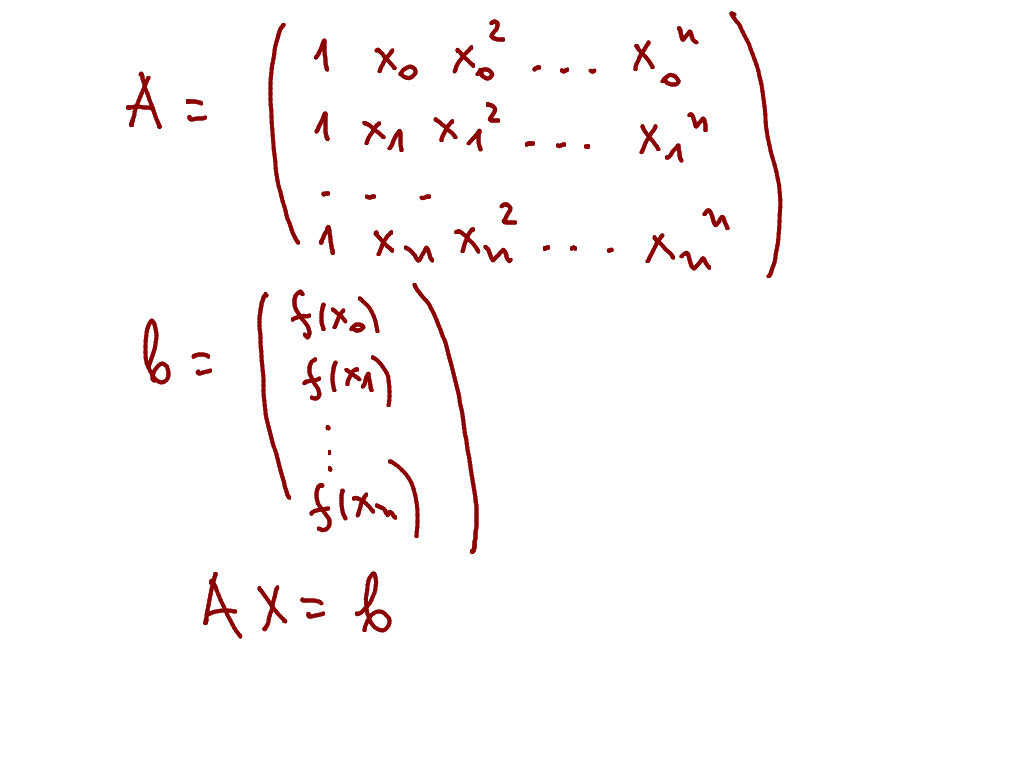 A = ( 1 x₀ x₀² ... x₀ⁿ
1 x₁ x₁² ... x₁ⁿ
. . .
1 xₙ xₙ² ... xₙⁿ )
b = ( f(x₀)
f(x₁)
⋮
f(xₙ) )
A X = b